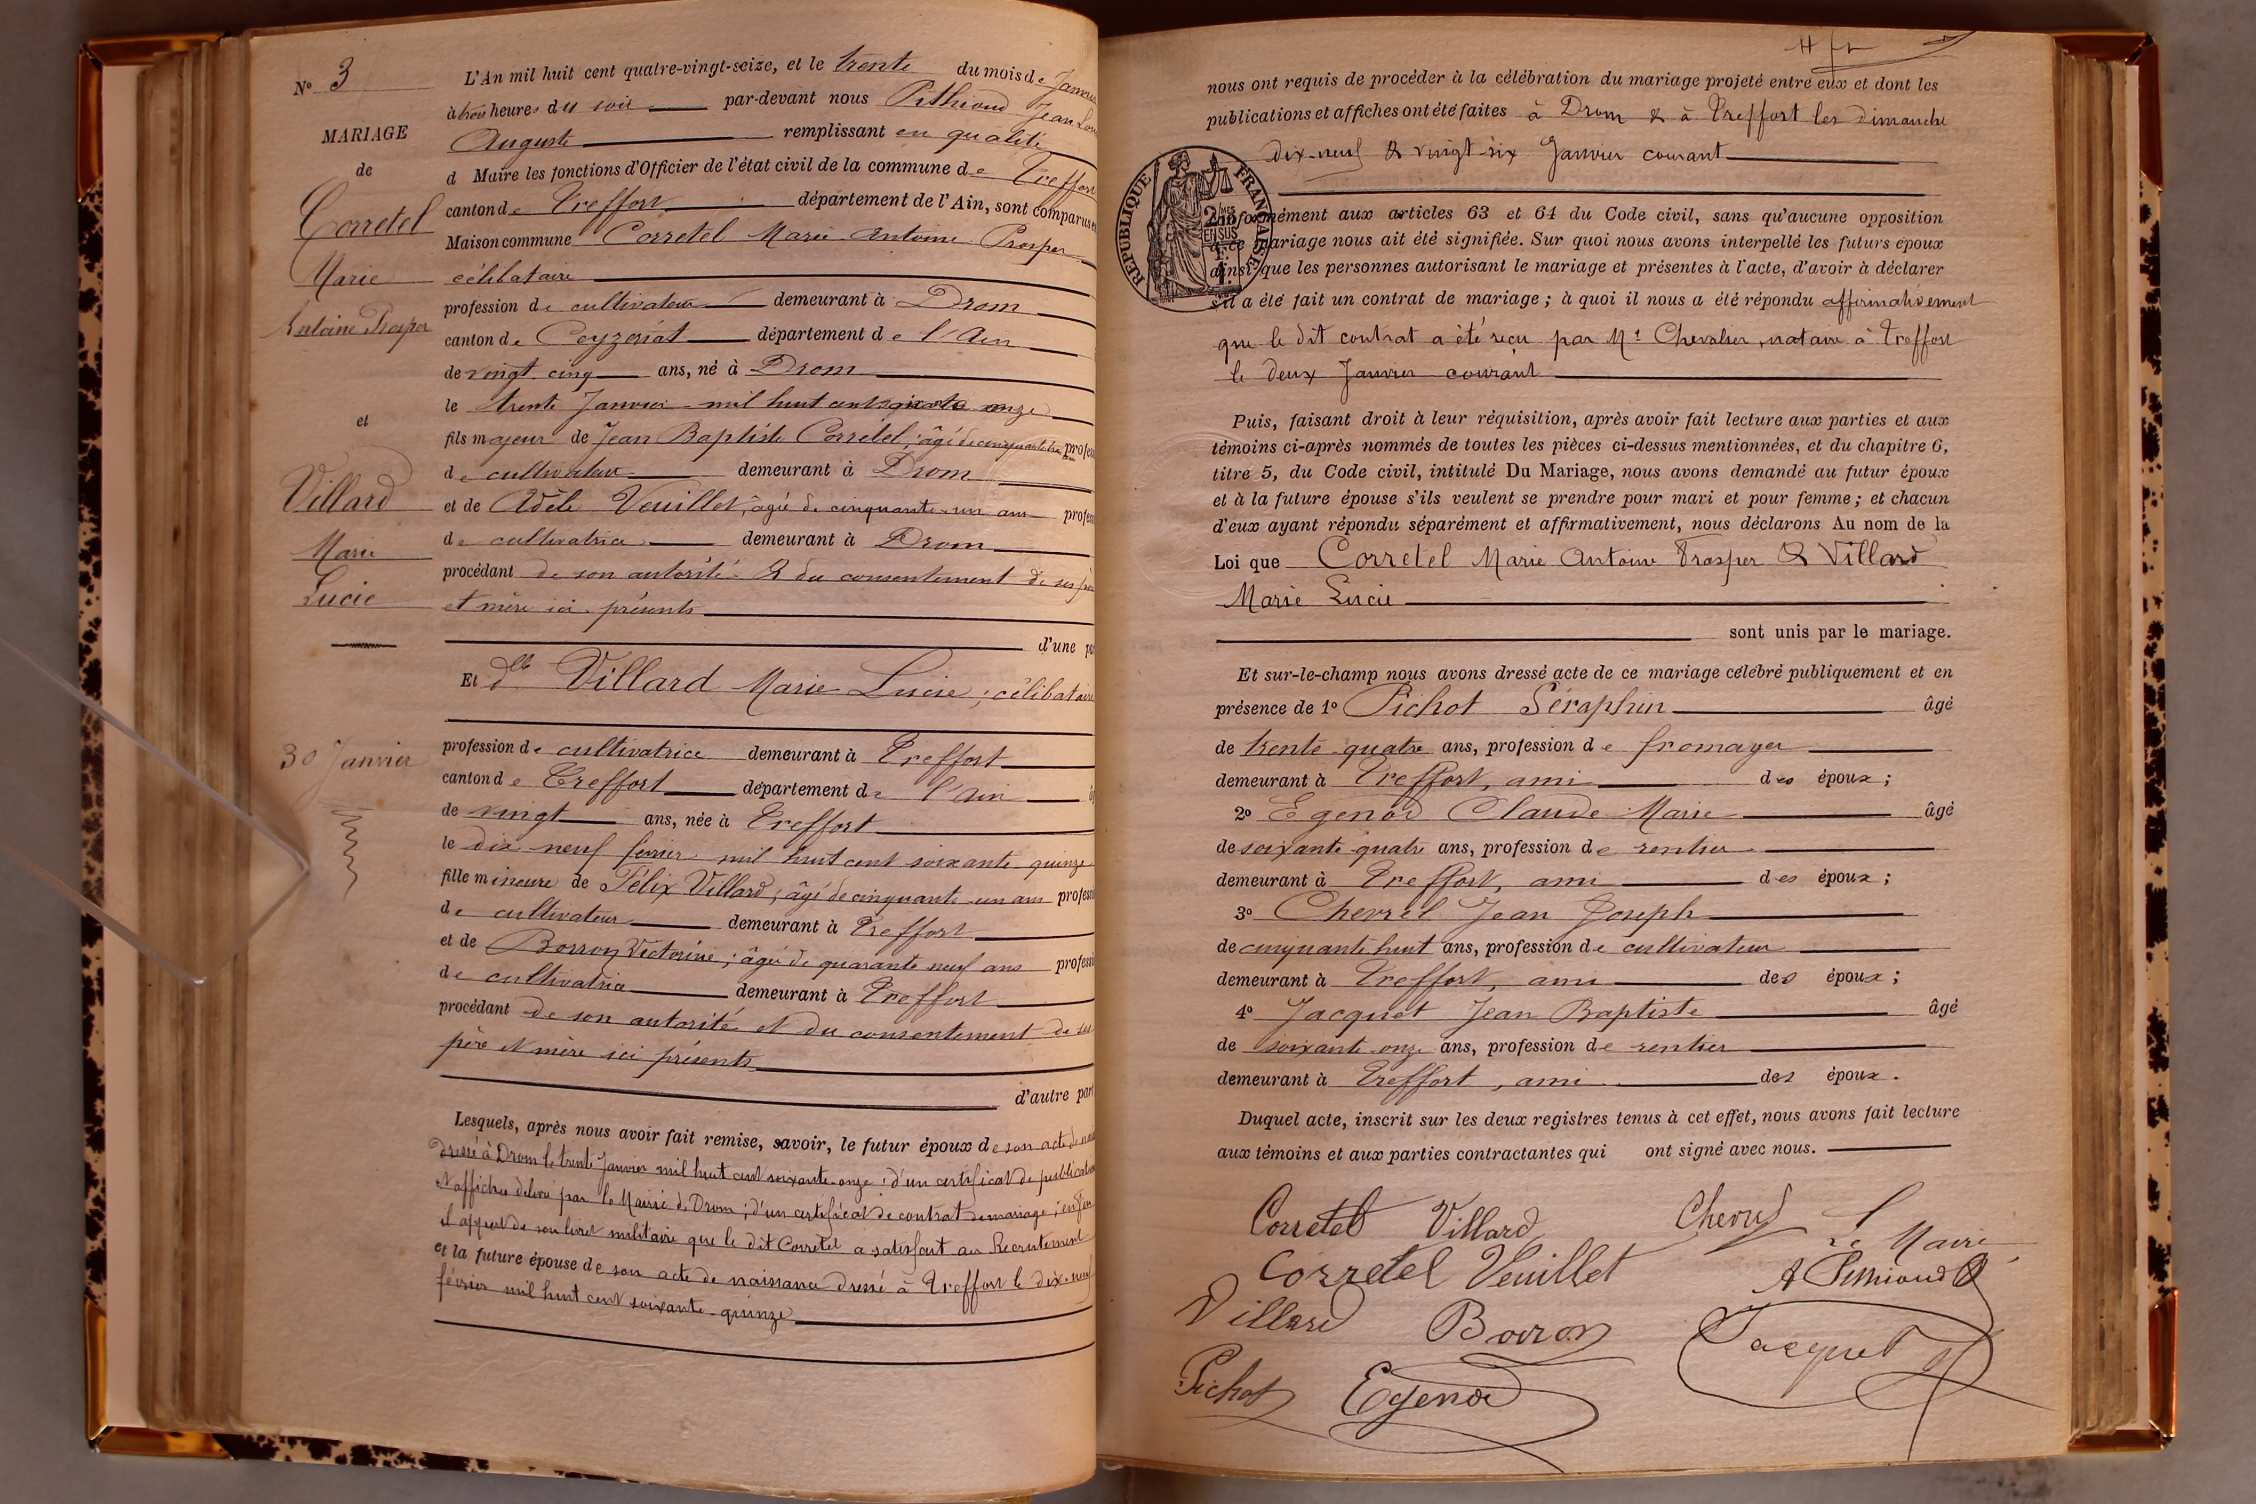 Nº 3
MARIAGE
de
Corretel
Marie
Antoine Prosper
et
Villard
Marie
Lucie
30 Janvier
L'An mil huit cent quatre-vingt-seize, et le trente du mois de Janvier
à trois heures du soir par-devant nous Pithioud Jean Louis
Auguste remplissant en qualité
d Maire les fonctions d'Officier de l'état civil de la commune de Treffort
canton de Treffort département de l'Ain, sont comparus en
Maison commune Corretel Marie Antoine Prosper
célibataire
profession de cultivateur demeurant à Drom
canton de Ceyzériat département de l'Ain
de vingt cinq ans, né à Drom
le trente Janvier mil huit cent soixante onze
fils majeur de Jean Baptiste Corretel, âgé de cinquante trois ans profess
de cultivateur demeurant à Drom
et de Adèle Veuillet, âgée de cinquante un ans profess
de cultivatrice demeurant à Drom
procédant de son autorité & du consentement de ses père
et mère ici présents
d'une par
Et dlle Villard Marie Lucie, célibataire
profession de cultivatrice demeurant à Treffort
canton de Treffort département de l'Ain
de vingt ans, née à Treffort
le dix neuf février mil huit cent soixante quinze
fille mineure de Félix Villard, âgé de cinquante un ans profess
de cultivateur demeurant à Treffort
et de Borron Victorine, âgée de quarante neuf ans profess
de cultivatrice demeurant à Treffort
procédant de son autorité et du consentement de ses
père et mère ici présents
d'autre part
Lesquels, après nous avoir fait remise, savoir, le futur époux de son acte de nais
dressé à Drom le trente Janvier mil huit cent soixante-onze; d'un certificat de publication
et affiches délivré par le Maire de Drom; d'un certificat de contrat de mariage; enfin
il appert de son livret militaire que le dit Corretel a satisfait au Recrutement
et la future épouse de son acte de naissance dressé à Treffort le dix-neuf
février mil huit cent soixante-quinze
nous ont requis de procéder à la célébration du mariage projeté entre eux et dont les
publications et affiches ont été faites à Drom & à Treffort les dimanche
dix-neuf & vingt-six Janvier courant
RÉPUBLIQUE FRANÇAISE
2 MES EN SUS
conformément aux articles 63 et 64 du Code civil, sans qu'aucune opposition
à ce mariage nous ait été signifiée. Sur quoi nous avons interpellé les futurs époux
ainsi que les personnes autorisant le mariage et présentes à l'acte, d'avoir à déclarer
s'il a été fait un contrat de mariage; à quoi il nous a été répondu affirmativement
que le dit contrat a été reçu par Me Chevalier, notaire à Treffort
le deux Janvier courant
Puis, faisant droit à leur réquisition, après avoir fait lecture aux parties et aux
témoins ci-après nommés de toutes les pièces ci-dessus mentionnées, et du chapitre 6,
titre 5, du Code civil, intitulé Du Mariage, nous avons demandé au futur époux
et à la future épouse s'ils veulent se prendre pour mari et pour femme; et chacun
d'eux ayant répondu séparément et affirmativement, nous déclarons Au nom de la
Loi que Corretel Marie Antoine Prosper & Villard
Marie Lucie
sont unis par le mariage.
Et sur-le-champ nous avons dressé acte de ce mariage célébré publiquement et en
présence de 1º Pichot Séraphin âgé
de trente-quatre ans, profession de fromager
demeurant à Treffort, ami des époux;
2º Egenod Claude Marie âgé
de soixante quatre ans, profession de rentier
demeurant à Treffort, ami des époux;
3º Chevrel Jean Joseph
de cinquante huit ans, profession de cultivateur
demeurant à Treffort, ami des époux;
4º Jacquet Jean Baptiste âgé
de soixante onze ans, profession de rentier
demeurant à Treffort, ami des époux.
Duquel acte, inscrit sur les deux registres tenus à cet effet, nous avons fait lecture
aux témoins et aux parties contractantes qui ont signé avec nous.
Corretel Villard Chevrel Le Maire
Corretel Veuillet A Pithioud
Villard Borron Jacquet
Pichot Egenod